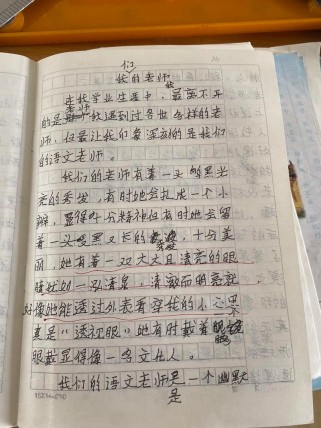 们
我的老师
在我学业生涯中，最离不开
的是老师我遇到过各世各样的老
师，但最让我印象深刻的是我们
的语文老师。
我们的老师有着一头乌黑光
亮的秀发，有时她会扎成一个小
辫，显得十分精神但有时她会留
着一头黑又长的秀发，十分美
丽，她有着一双大大且清亮的眼
睛犹如一泓清泉，清澈而明亮就
好像她能透过外表看穿我的小心思
真是“透视眼”她有时戴着眼镜
眼戴显得像一名文化人。
我们的语文老师是一个幽默
是